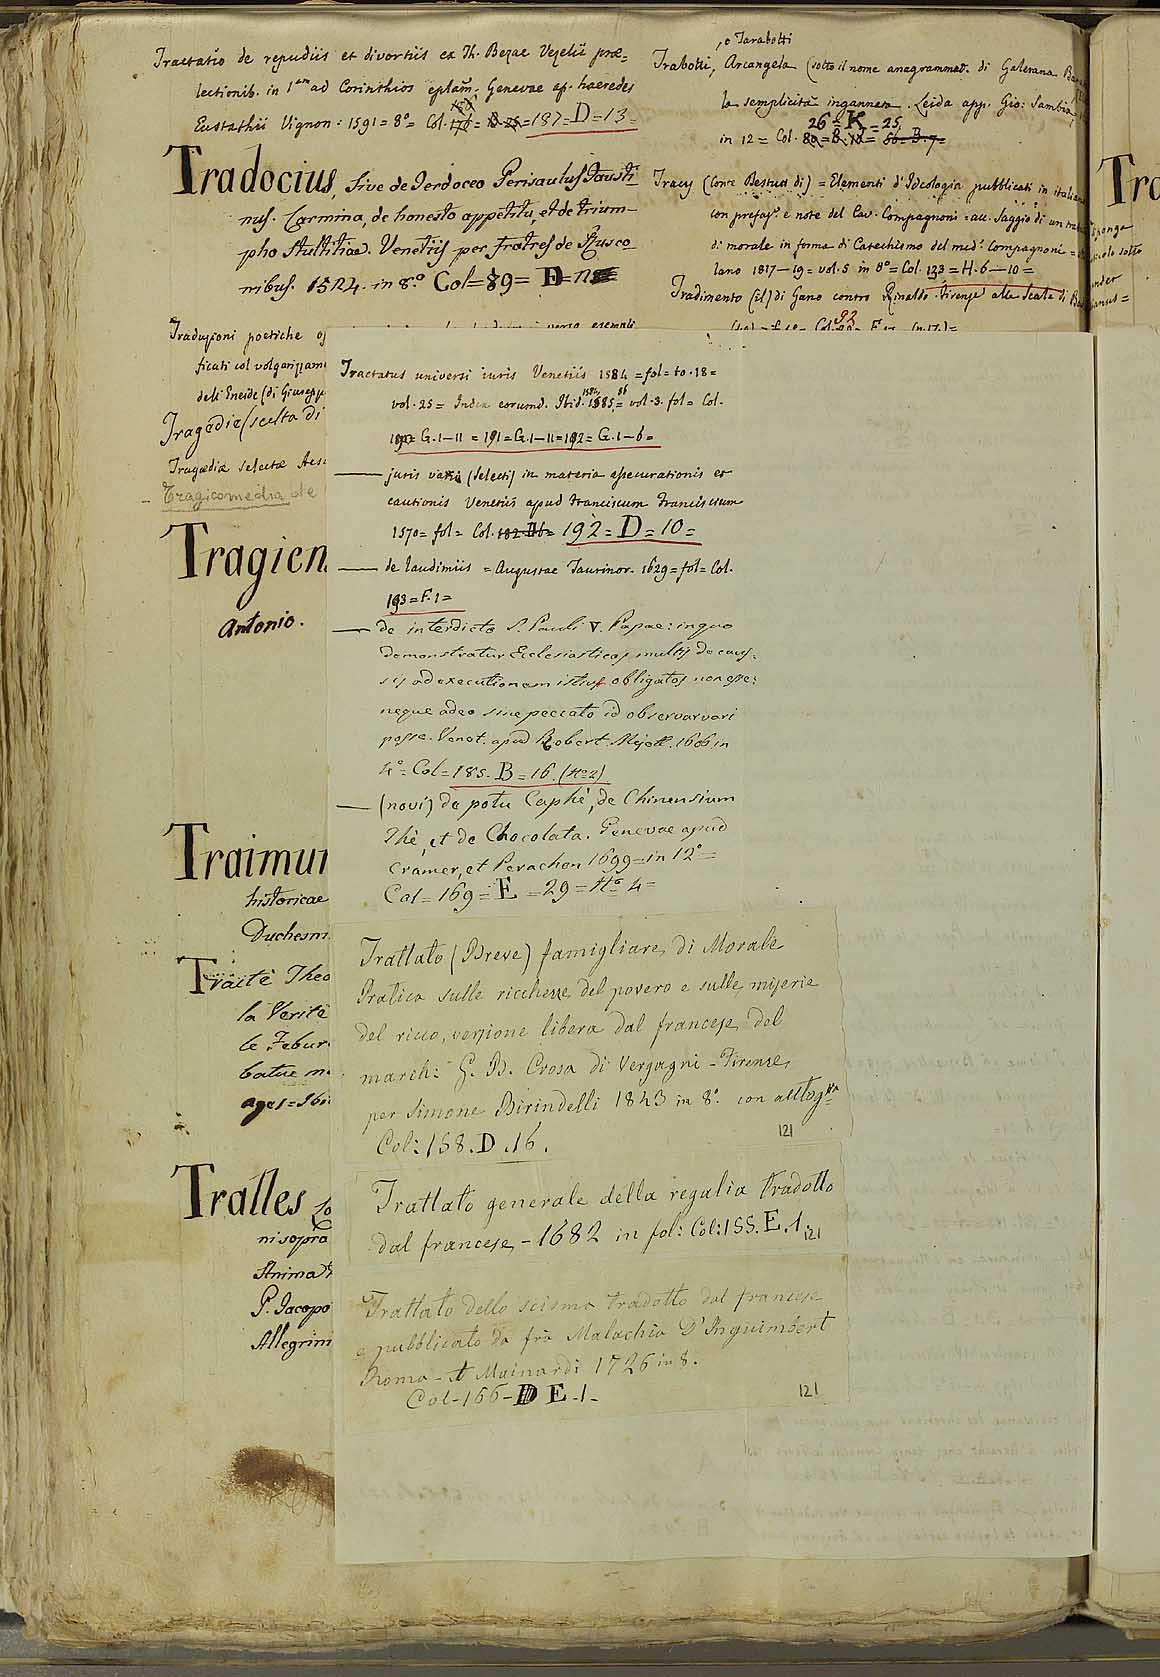 Tractatio de repudiis et divortiis ex Th. Bezae Vezelii præ=
lectionib. in 1am ad Corinthios eplam. Genevae ap. haeredes
Eustathii Vignon: 1591 = 8° = Col. 187 = D = 13 =
Tradocius, sive de Jerdoceo Perisaulus Fausti=
nus. Carmina, de honesto appetitu, et de trium-
pho stultitiae. Venetiis per fratres de
nibus. 1524. in 8.° Col = 89 = E = 11
Traduzioni poetiche
ficati col volgarizzam
dell Eneide (di Giusepp
Tragedie (scelta di
Tragœdiæ selectæ Aes
Tragicomedia de
Tragien
Antonio.
Traimun
historicae
Duchesn
Traitè Theo
la Veritè
le Febur
batue
ages = Ibi
Tralles Lo
ni sopra
Anima
P. Jacopo
Allegrin
, o Tarabotti
Trabotti, Arcangela (sotto il nome anagrammat. di Galerana Ba
la semplicità ingannata. Leida app. Gio: Sambix,
26 = K = 25
in 12 = Col.
Tracy (Conte Destutt di) = Elementi d'Ideologia pubblicati in italian
con prefaz.e e note del Cav. Compagnoni = acc. Saggio di un
di morale in forma di Catechismo del med.° Compagnoni =
lano 1817-19 = vol. 5 in 8° = Col. 133 = H. 6-10 =
Tradimento (il) di Gano contro Rinaldo. Firenze alle Scale di Ba
92
Tractatus universi iuris Venetiis 1584 = fol = to. 18 =
vol. 25 = Index eorumd. Ibid. = vol. 3. fol = Col.
190 = G. 1-11 = 191 = G. 1-11 = 192 = G. 1-6 =
—— juris varii (Selecti) in materia assecurationis et
cautionis Venetiis apud Franciscum Franciscium
1570 = fol = Col. 192 = D = 10 =
—— de laudimiis = Augustae Taurinor. 1629 = fol = Col.
193 = F. 1 =
—— de interdicto S. Pauli V. Papae: in quo
demonstratur Ecclesiasticos multis de caus-
sis ad executionem istius obligatos non esse:
neque adeo sine peccato id observarvari
posse. Venet. apud Robert. Mejett. 1606 in
4° = Col = 185. B = 16. (N° 2)
—— (novi) de potu Caphè, de Chinensium
Thè, et de Chocolata. Genevae apud
Cramer, et Perachon 1699 = in 12° =
Col = 169 = E = 29 = N° 4 =
Trattato (Breve) famigliare di Morale
Pratica sulle ricchezze del povero e sulle miserie
del ricco, versione libera dal francese del
march: G. B. Crosa di Vergagni - Firenze
per Simone Birindelli 1843 in 8°. con
Col: 158. D. 16.
121
Trattato generale della regalia tradotto
dal francese - 1682 in fol: Col: 155. E. 1.
121
Trattato dello scisma tradotto dal francese
e pubblicato da fra Malachia D'Inguimbert
Roma - Mainardi 1726 in 8.
Col - 166 - E - 1 -
121
Tra